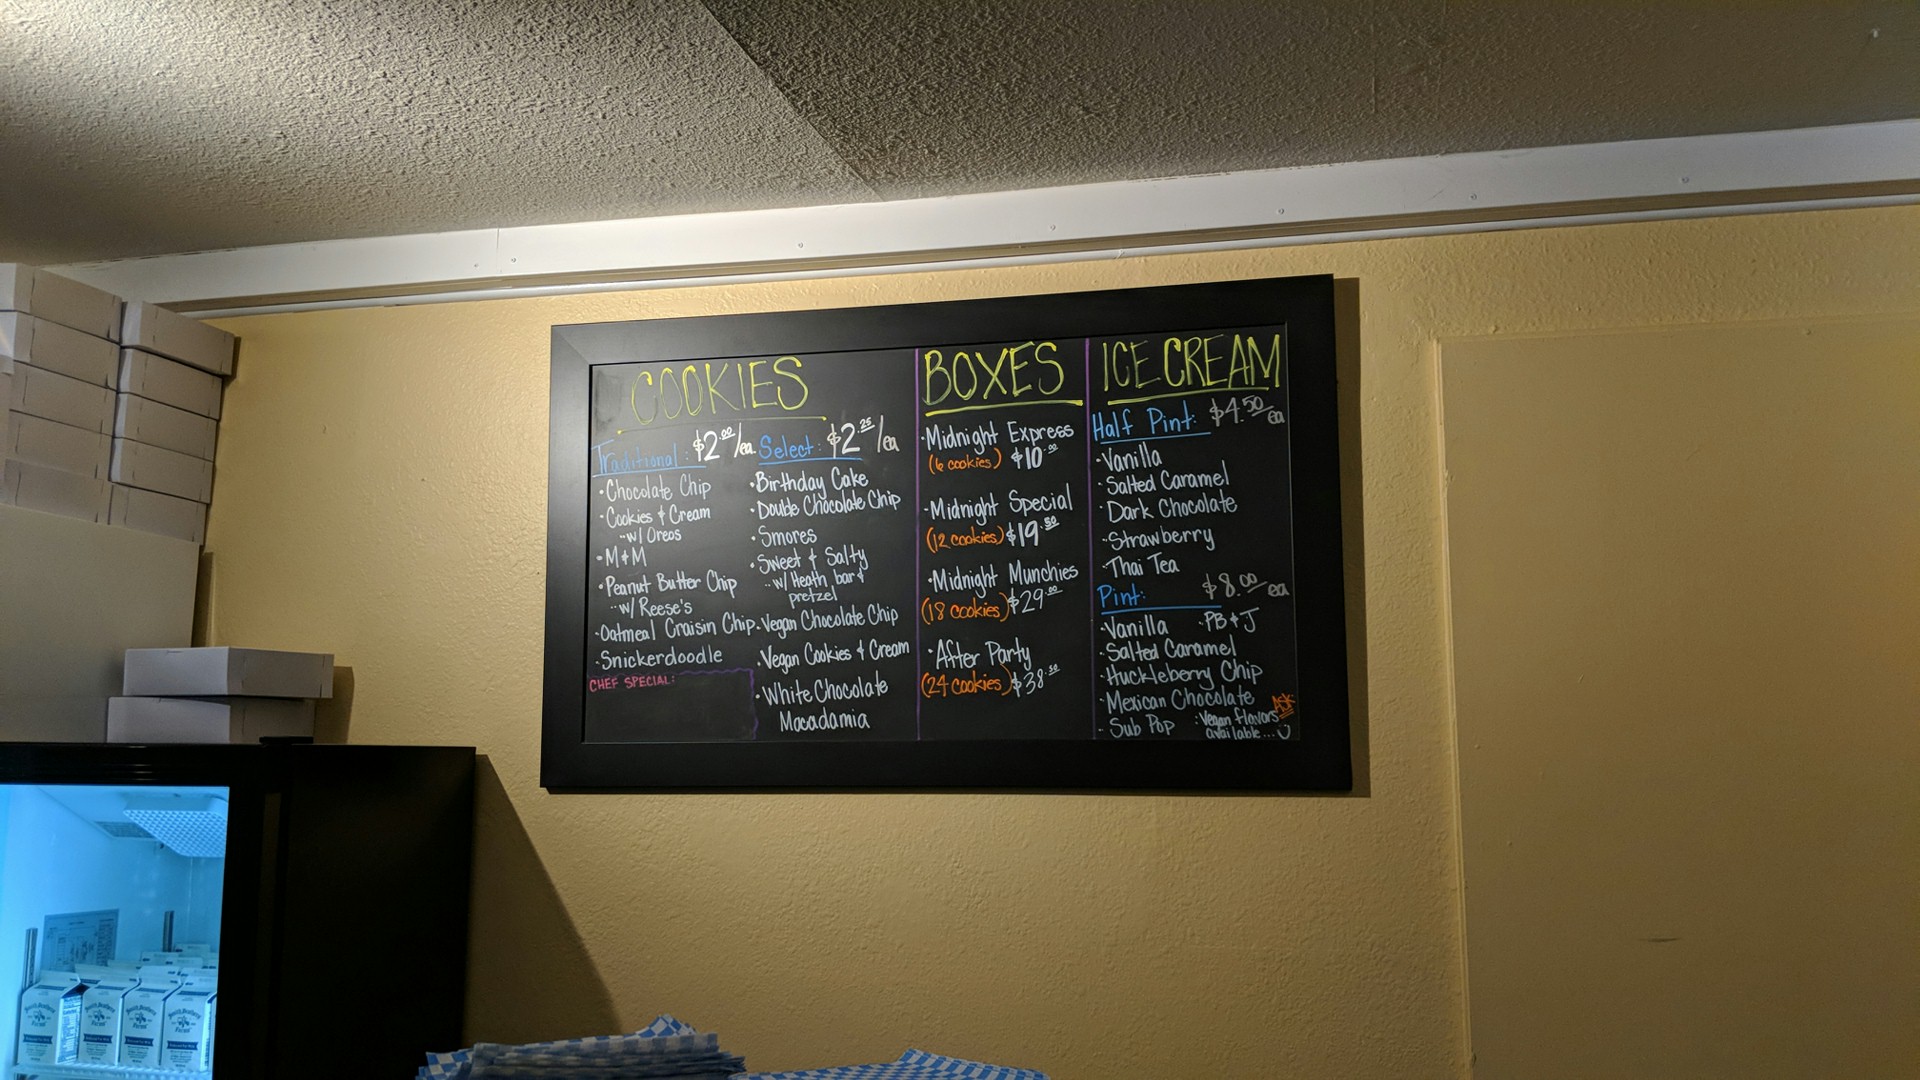 COOKIES
Traditional: $2.00/ea.
• Chocolate Chip
• Cookies & Cream
·· w/ Oreos
• M&M
• Peanut Butter Chip
·· w/ Reese's
• Oatmeal Craisin Chip
• Snickerdoodle
CHEF SPECIAL:
Select: $2.25/ea
• Birthday Cake
• Double Chocolate Chip
• Smores
• Sweet & Salty
·· w/ Heath bar &
pretzel
• Vegan Chocolate Chip
• Vegan Cookies & Cream
• White Chocolate
Macadamia
BOXES
• Midnight Express
(6 cookies) $10.00
• Midnight Special
(12 cookies) $19.50
• Midnight Munchies
(18 cookies) $29.00
• After Party
(24 cookies) $38.50
ICE CREAM
Half Pint: $4.50 ea
• Vanilla
• Salted Caramel
• Dark Chocolate
• Strawberry
• Thai Tea
Pint: $8.00 ea
• Vanilla • PB & J
• Salted Caramel
• Huckleberry Chip
• Mexican Chocolate
• Sub Pop
ASK
: Vegan flavors
available...
Farms